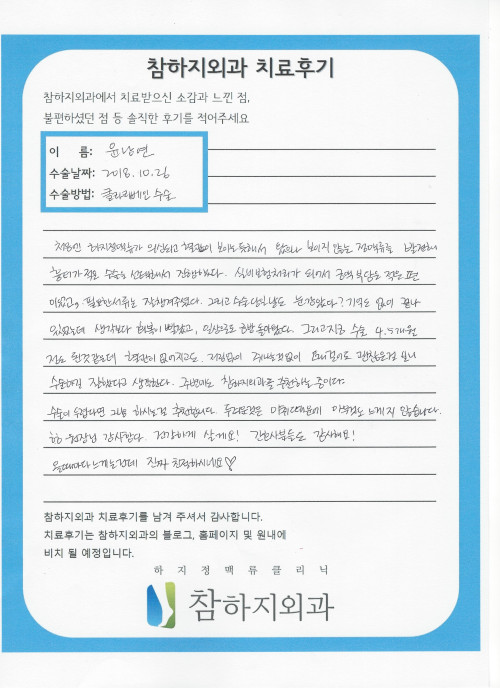 참하지외과 치료후기
참하지외과에서 치료받으신 소감과 느낀 점,
불편하셨던 점 등 솔직한 후기를 적어주세요
이 름: 윤남연
수술날짜: 2018.10.26
수술방법: 클라리베인 수술
처음엔 하지정맥류가 의심되고 혈관이 보이는 듯해서 왔으나 보이지 않는 정맥류를 발견하
흉터가 적은 수술을 선택해서 진행하였다. 실비보험처리가 되어서 금액 부담은 적은 편
이었고, 필요한 서류는 잘 챙겨주셨다. 그리고 수술 당일날은 아팠었나? 기억도 없이 끝나
있었는데 생각보다 회복이 빨랐고, 일상으로 돌아왔다. 그리고 지금 수술 4.5개월
정도 된것같은데 혈관이 없어지고도. 저림없이 오래걸어도 괜찮은걸 보니
수술하길 잘했다고 생각한다. 주변에도 참하지외과를 추천하는 중이다.
수술이 두렵다면 그냥 하시는걸 추천합니다. 두려운것은 마취때문에 아무것도 느끼지 않습니다.
원장님 감사합니다. 건강하게 살게요! 간호사분들도 감사해요!
올때마다 느끼는건데 진짜 친절하시네요♡
참하지외과 치료후기를 남겨 주셔서 감사합니다.
치료후기는 참하지외과의 블로그, 홈페이지 및 원내에
비치 될 예정입니다.
하지정맥류클리닉
참하지외과